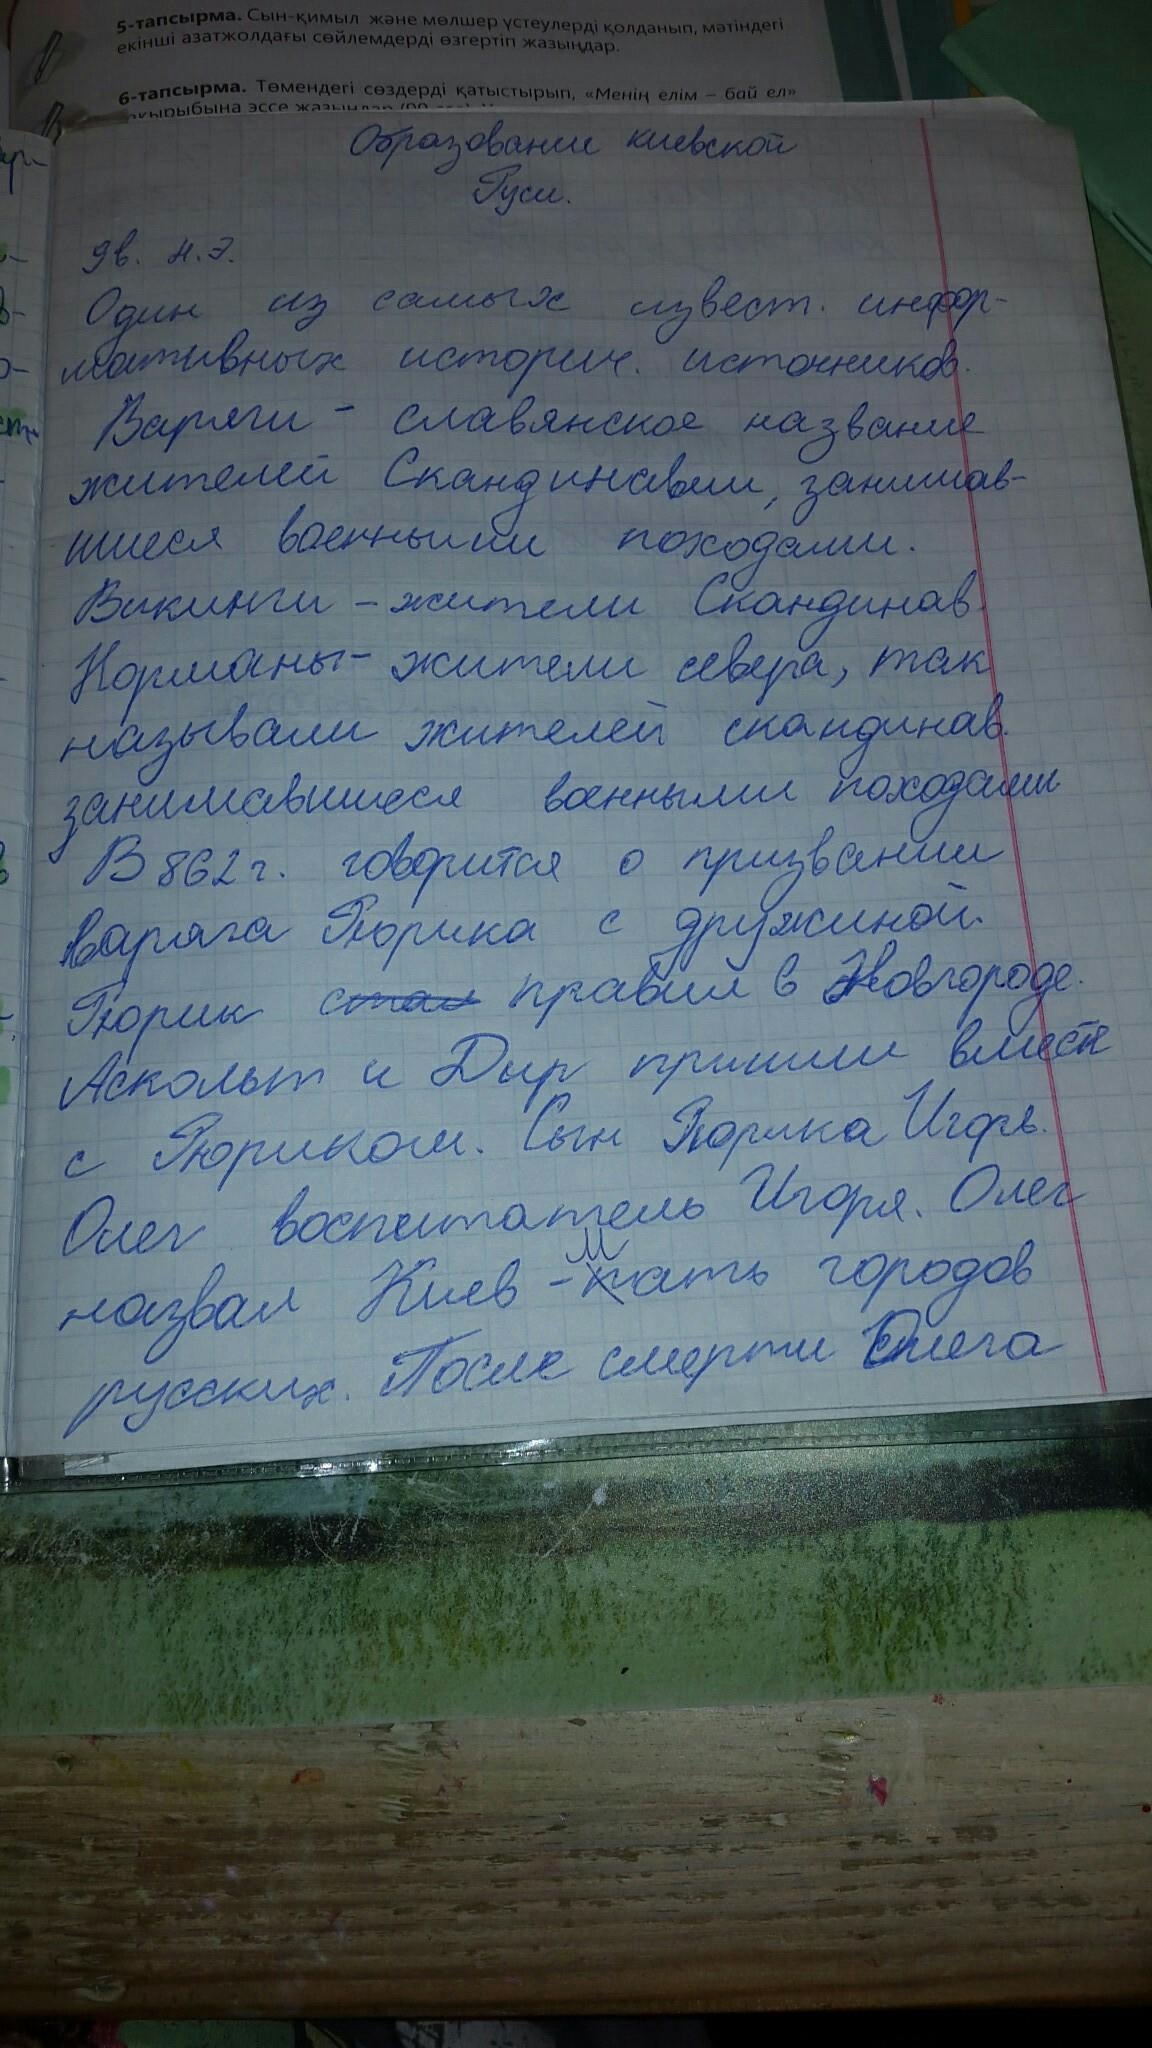 5-тапсырма. Сын-қимыл және мөлшер үстеулерді қолданып, мәтіндегі
екінші азатжолдағы сөйлемдерді өзгертіп жазыңдар.
6-тапсырма. Төмендегі сөздерді қатыстырып, «Менің елім – бай ел»
Образование киевской
Руси.
9в. н.э.
Один из самых извест. инфор-
мативных историч. источников.
Варяги - славянское название
жителей Скандинавии, занимав-
шиеся военными походами.
Викинги - жители Скандинав.
Норманы - жители севера, так
называли жителей скандинав.
занимавшиеся военными походами
В 862 г. говорится о призвании
варяга Рюрика с дружиной.
Рюрик стал правил в Новгороде.
Аскольт и Дир пришли вместе
с Рюриком. Сын Рюрика Игорь.
Олег воспитатель Игоря. Олег
назвал Киев - мать городов
русских. После смерти Олега